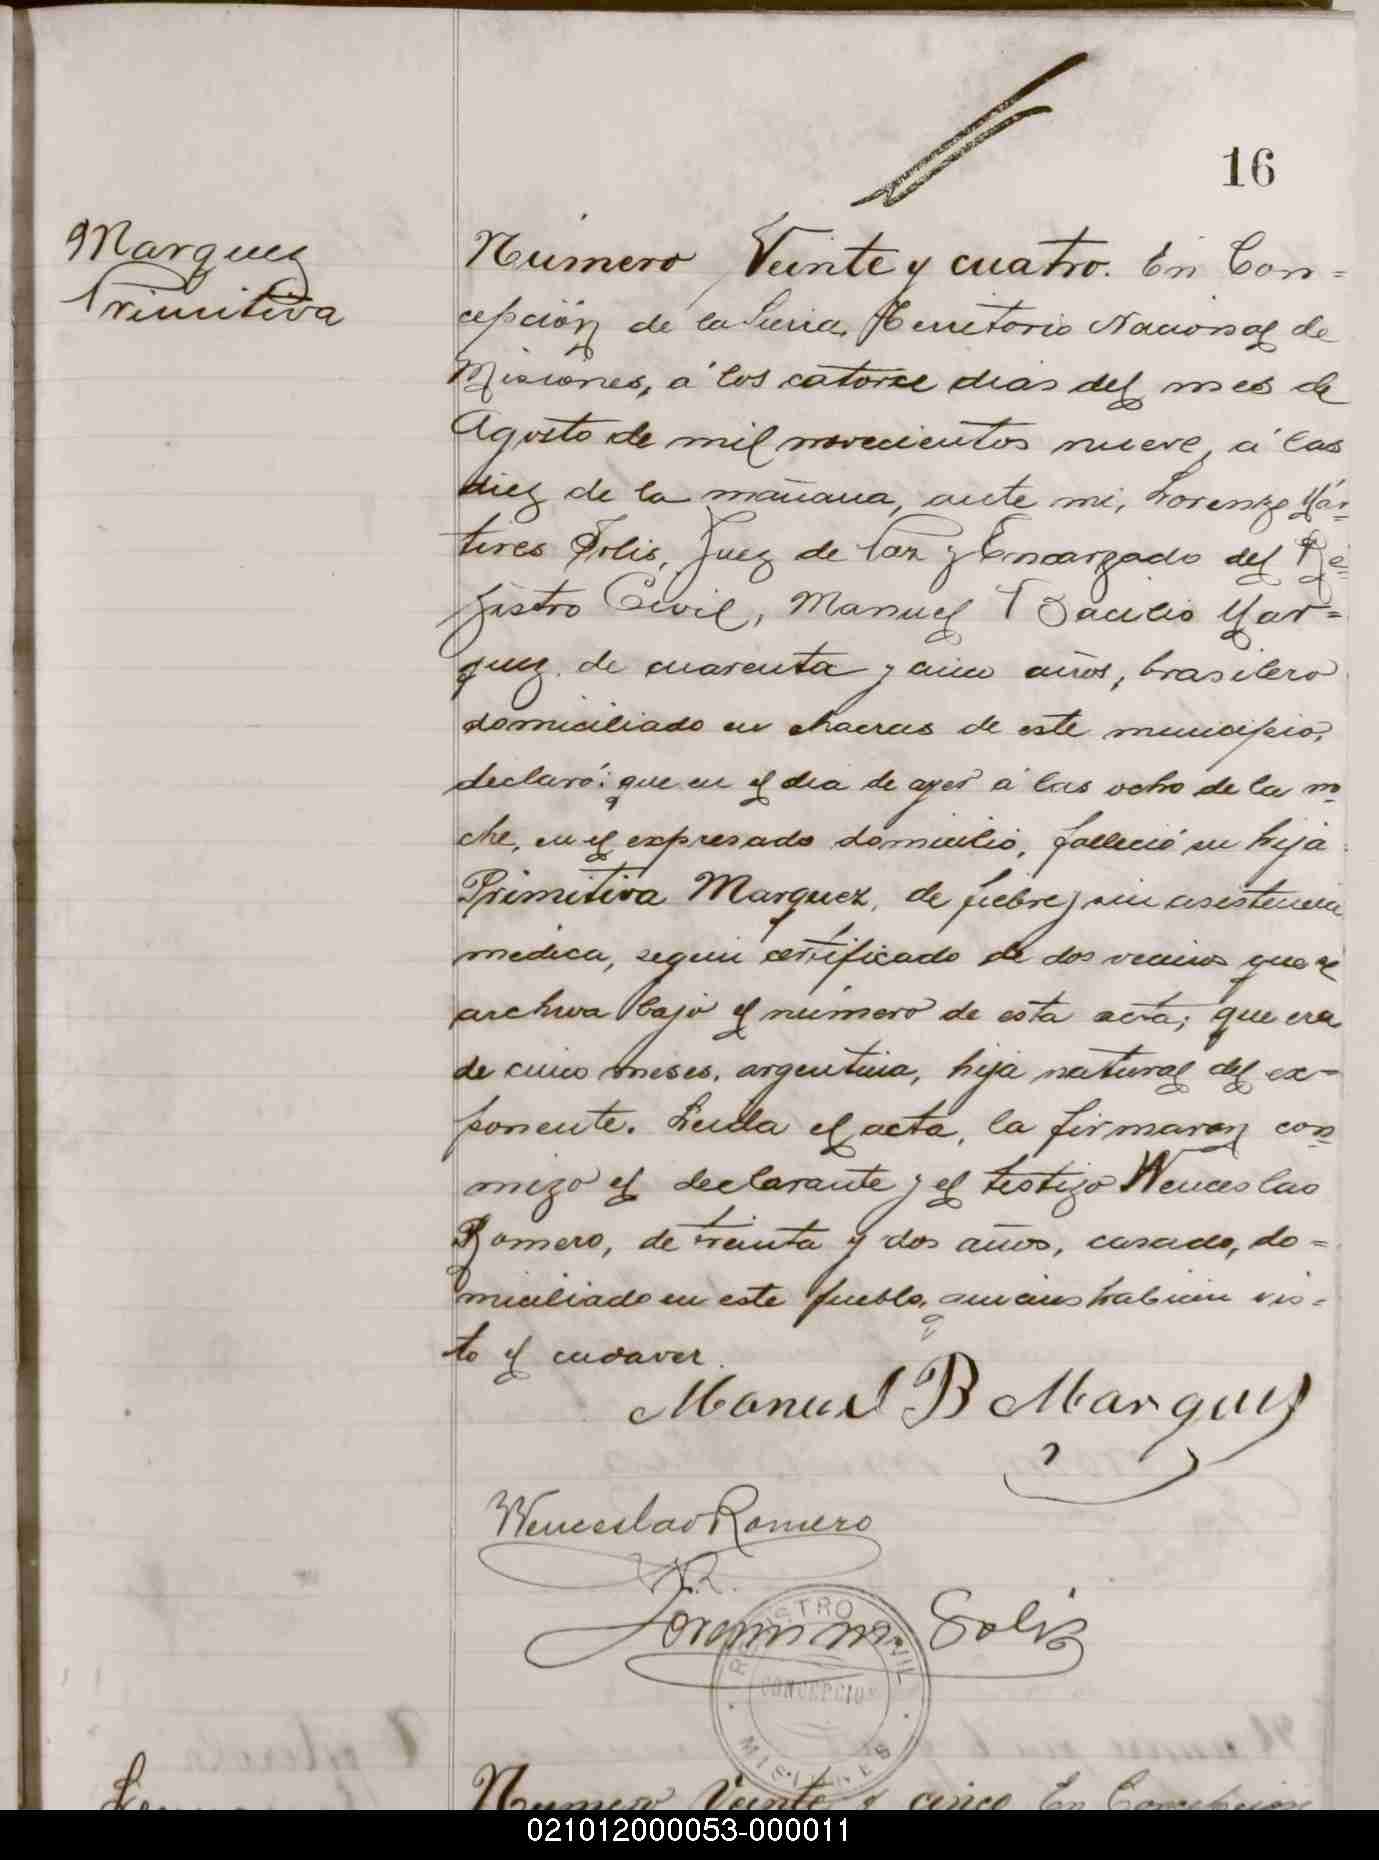 16
Marquez
Primitiva
Número Veinte y cuatro. En Con=
cepción de la Sierra, Territorio Nacional de
Misiones, á los catorce dias del mes de
Agosto de mil novecientos nueve, á las
diez de la mañana, ante mi, Lorenzo Már-
tires Solis, Juez de Paz y Encargado del Re=
gistro Civil, Manuel Bacilio Mar=
quez de cuarenta y cinco años, brasilero
domiciliado en chacras de este municipio,
declaró: que en el dia de ayer á las ocho de la no-
che, en el expresado domicilio, falleció su hija
Primitiva Marquez, de fiebre, sin asistencia
médica, segun certificado de dos vecinos que se
archiva bajo el número de esta acta; que era
de cinco meses, argentina, hija natural del ex-
ponente. Leida el acta, la firmaron con-
migo el declarante y el testigo Wenceslao
Romero, de treinta y dos años, casado, do=
miciliado en este pueblo, quienes habian vis=
to el cadaver.
Manuel B Marquez
Wenceslao Romero
W.R.
Solis
REGISTRO CIVIL
CONCEPCION
MISIONES
Número Veinte y cinco En Concepcion
021012000053-000011